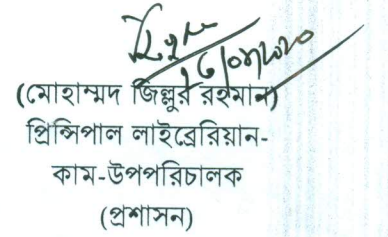 (মোহাম্মদ জিল্লুর রহমান)
প্রিন্সিপাল লাইব্রেরিয়ান-
কাম-উপপরিচালক
(প্রশাসন)